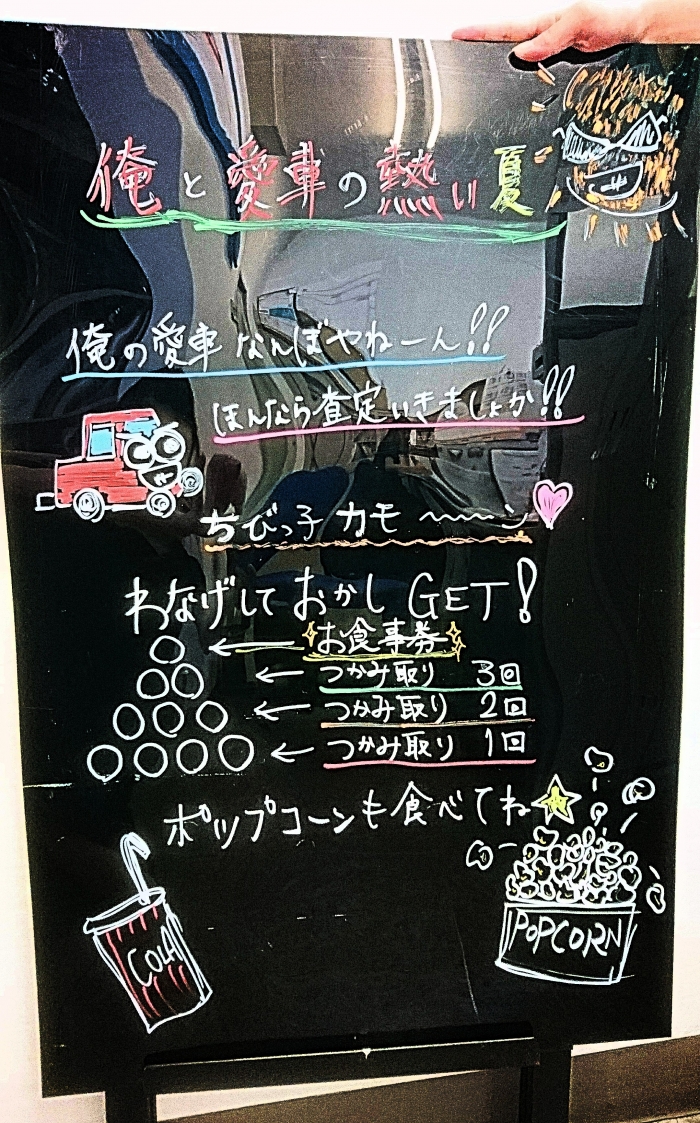 俺と愛車の熱い夏
俺の愛車なんぼやねーん!!
ほんなら査定いきましょか!!
ちびっ子カモ〜〜〜ン
わなげしておかしGET!
お食事券
つかみ取り 3回
つかみ取り 2回
つかみ取り 1回
ポップコーンも食べてね
COLA
POPCORN